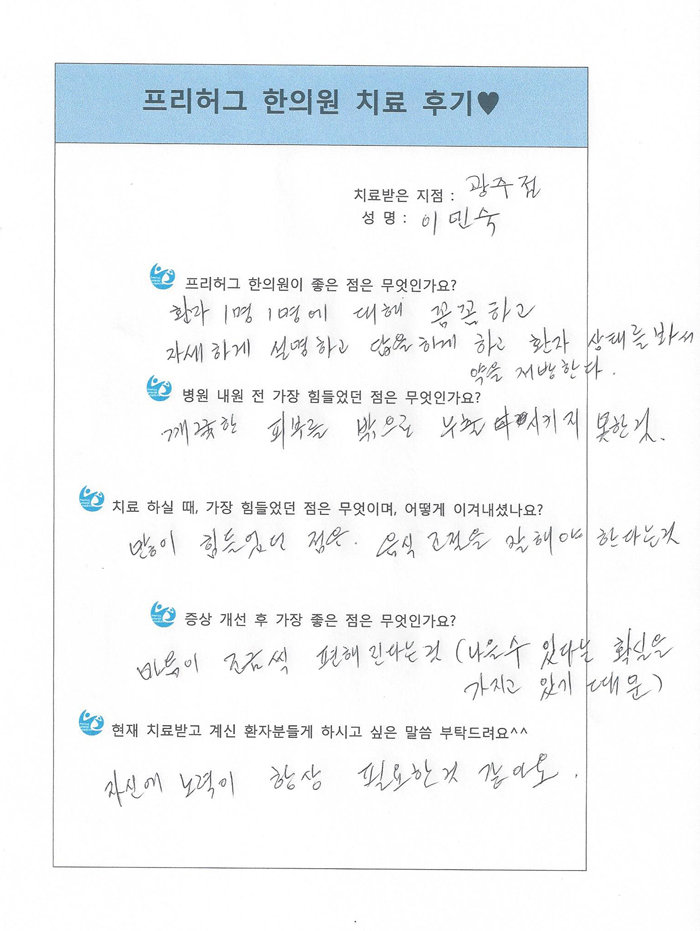 프리허그 한의원 치료 후기♥
치료받은 지점 : 광주점
성 명 : 이민숙
프리허그 한의원이 좋은 점은 무엇인가요?
환자 1명 1명에 대해 꼼꼼하고
자세하게 설명하고 답을하게 하고 환자 상태를 봐서
약을 처방한다.
병원 내원 전 가장 힘들었던 점은 무엇인가요?
깨끗한 피부를 밖으로 시키지 못한것.
치료 하실 때, 가장 힘들었던 점은 무엇이며, 어떻게 이겨내셨나요?
많이 힘들었던 점은. 음식 조절을 잘해야 한다는것
증상 개선 후 가장 좋은 점은 무엇인가요?
마음이 조금씩 편해진다는것 (나을수 있다는 확실을
가지고 있기 때문)
현재 치료받고 계신 환자분들게 하시고 싶은 말씀 부탁드려요^^
자신에 노력이 항상 필요한것 같아요.